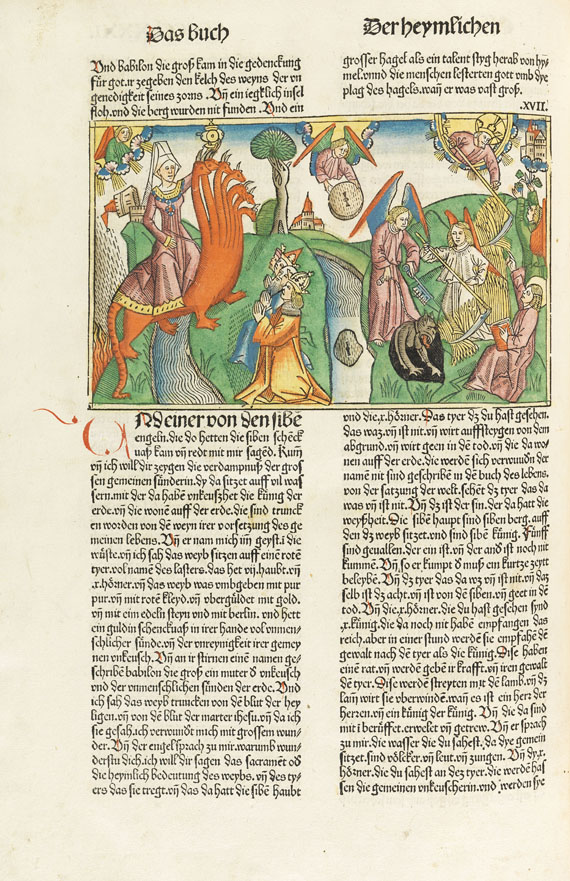 Das buch
Der heymlichen
Vnd babilon die groß kam in die gedenckung
für got.ir zegeben den kelch des weyns der vn
genedigkeit seines zorns. Vñ ein iegklich insel
floh.vnd die berg wurden nit funden. Vnd ein
grosser hagel als ein talent styg herab von hy=
mel.vnnd die menschen lesterten gott vmb dye
plag des hagels.wañ er was vast groß.
.XVII.
VNd einer von den sibē
engeln.die do hetten die siben schēck
uaß kam vñ redt mit mir sagēd. Kum̃
vñ ich will dir zeygen die verdampnuß der gros
sen gemeinen sünderin.dy da sitzet auff vil was
sern.mit der da habē vnkeußhet die künig der
erde.vñ die wonē auff der erde.die sind trunck
en worden von dē weyn irer vorsetzung des ge
meinen lebens. Vñ er nam mich im̄ geyst.i die
wüste.vñ ich sah das weyb sitzen auff einē rotē
tyer.vol namē des lasters.das het vij.haubt.vñ
.x.hörner.vñ das weyb was vmbgeben mit pur
pur.vñ mit rotē kleyd.vñ vbergüldet mit gold.
vñ mit eim edeln steyn vnd mit berlin. vnd hett
ein guldin schenckuaß in irer hande vol vnmen-
schlicher sünde.vñ der vnreynigkeit irer gemey
nen vnkeusch. Vñ an ir stirnen einē namen ge-
schribē babilon die groß ein muter ð vnkeusch
vnd der vnmenschlichen sünden der erde. Vnd
ich sah das weyb truncken von dē blut der hey
ligen.vñ von dē blut der marter ihesu.vñ da ich
sie gesah.ich verwundt mich mit grossem wun-
der. Vñ der engel sprach zu mir.warumb wun-
derstu dich.ich will dir sagen das sacramēt oð
die heymlich bedeutung des weybs. vñ des ty-
ers das sie tregt.vñ das da hatt die sibē haubt
vnd die.x.hörner. Das tyer dz du hast gesehen.
das waz.vñ ist nit.vñ wirt auffsteygen von dem
abgrund.vñ wirt geen in dē tod.vñ die da wo-
nen auff der erde.die werdē sich verwundn der
namē nit sind geschribē in dē buch des lebens.
von der satzung der welt.sehēt dz tyer das da
was vñ ist nit. Vñ dz ist der sin.der da hatt die
weyßheit. Die sibē haupt sind siben berg.auff
den dz weyb sitzet.vnd sind sibē künig. Fünff
sind geuallen.der ein ist.vñ der and̄ ist noch nit
kummen. Vñ.so er kumpt ð muß ein kurtze zeytt
beleybē. Vñ dz tyer das da wz vñ ist nit.vñ daz
selb ist dz acht.vñ ist von dē siben.vñ geet in dē
tod. Vñ die.x.hörner.die du hast gesehen synd
.x.künig.die da noch nit habē empfangen das
reich.aber in einer stund werdē sie empfahē dē
gewalt nach dē tyer als die künig. Dise haben
einē rat.vñ werdē gebē ir krafft.vñ iren gewalt
dē tyer. Dise werdē streyten mit dē lamb.vñ dz
lam̄ wirt sie vberwindē.wañ es ist ein herz der
herzen.vñ ein künig der künig. Vñ die da sind
mit ī berüffet.erwelet vñ getrew. Vñ er sprach
zu mir.die wasser die du sahest.da dye gemein
sitzet.sind völcker.vñ leut.vñ zungen. Vñ dy.x.
hörner.die du sahest an dez tyer.die werdē has
sen die gemeinen vnkeuscherin.vnd werden sye